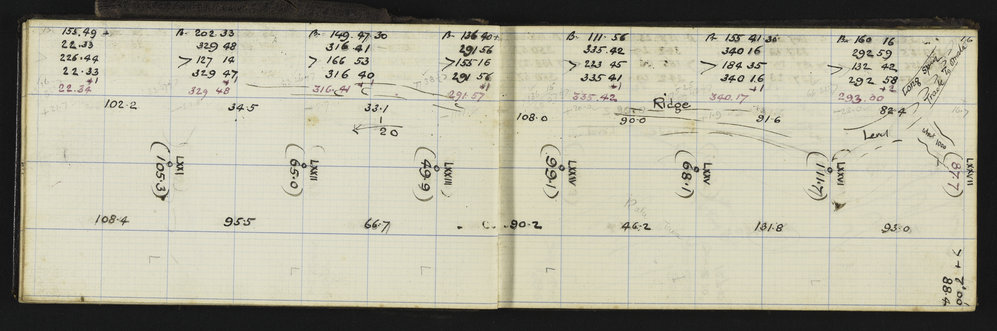 B. 155.49 +
22.33
> 226.44
22.33
+1
22.34
B. 202 33
329 48
> 127 14
329 47
+1
329 48
B. 149.47 30
316 41
> 166 53
316 40
+1
316.41
B. 136 40+
291 56
> 155 16
291 56
+1
291.57
B. 111.56
335.42
> 223 45
335 41
+1
335.42
B. 155 41 30
340 16
> 184 35
340 16
+1
340.17
B. 160 16
292 59
> 132 42
292 58
+2
293.00
Long
Track To
102.2
34.5
33.1
1
20
108.0
90.0
Ridge
91.6
82.4
Level
LXXI
(105.3)
LXXII
(65.0)
LXXIII
(49.9)
LXXIV
(99.1)
LXXV
(68.1)
LXXVI
(111.7)
LXXVII
(87.7)
108.4
95.5
66.7
90.2
46.2
131.8
93.0
> + 7°00'
88.4